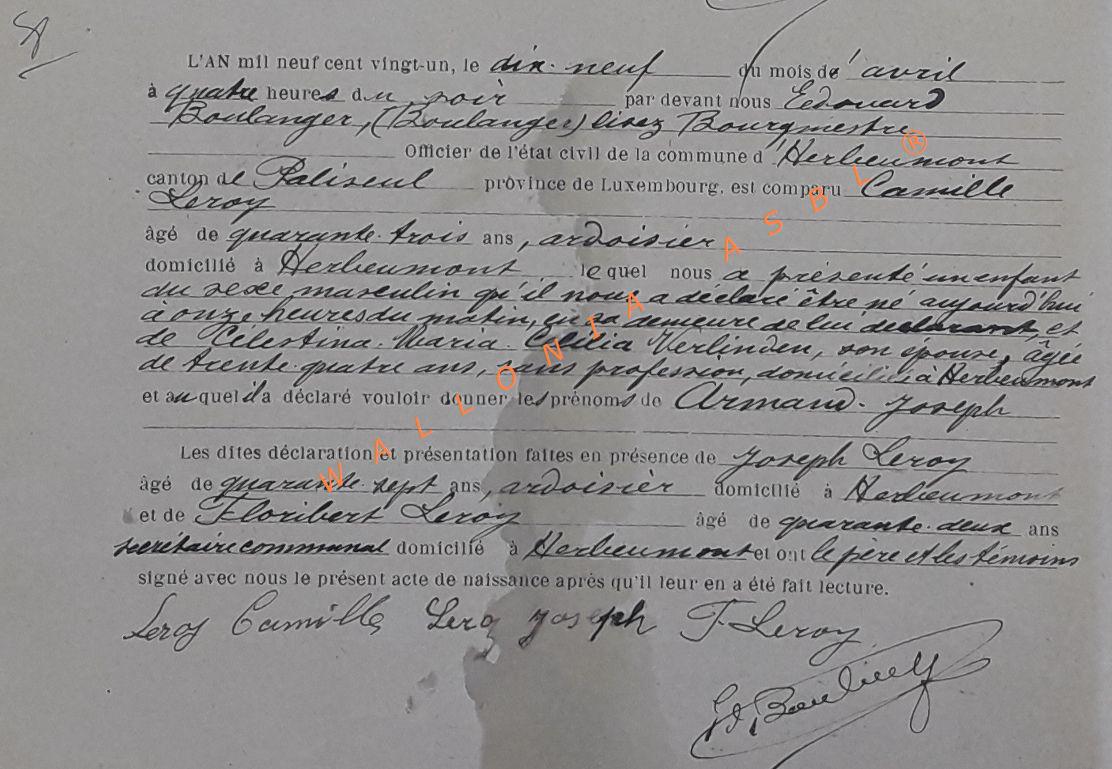 L'AN mil neuf cent vingt-un, le dix-neuf du mois de avril
à quatre heures du soir par devant nous Edouard
Boulanger, (Boulanger) lisez Bourgmestre
Officier de l'état civil de la commune d'Herbeumont
canton de Paliseul province de Luxembourg, est comparu Camille
Leroy
âgé de quarante-trois ans, ardoisier
domicilié à Herbeumont lequel nous a présenté un enfant
du sexe masculin qu'il nous a déclaré être né aujourd'hui
à onze heures du matin, en sa demeure de lui déclarant, et
de Célestina-Maria-Célilia Verlinden, son épouse, âgée
de trente-quatre ans, sans profession, domiciliée à Herbeumont
et auquel il a déclaré vouloir donner les prénoms de Armand-Joseph
Les dites déclaration et présentation faites en présence de Joseph Leroy
âgé de quarante-sept ans, ardoisier domicilié à Herbeumont
et de Floribert Leroy âgé de quarante-deux ans
secrétaire communal domicilié à Herbeumont et ont le père et les témoins
signé avec nous le présent acte de naissance après qu'il leur en a été fait lecture.
Leroy Camille Leroy Joseph F. Leroy
WALLONIA ASBL®